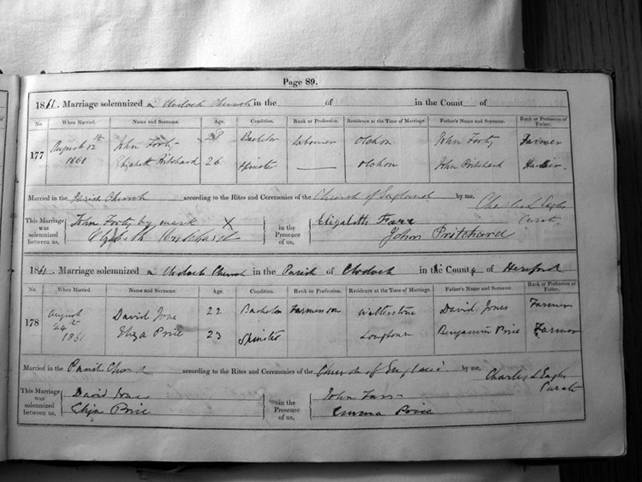 Page 89.
1861. Marriage solemnized in Clodock Church in the of in the Count of
No. When Married. Name and Surname. Age. Condition. Rank or Profession. Residence at the Time of Marriage. Father's Name and Surname. Rank or Profession of Father.
177 August 12th 1861 John Forty 28 Bachelor Labourer Olchon John Forty Farmer
Elizabeth Pritchard 26 Spinster Olchon John Pritchard
Married in the Parish Church according to the Rites and Ceremonies of the Church of England by me, Charles L Eagles
Curate
This Marriage was solemnized between us, John Forty by mark X in the Presence of us, Elizabeth Farr
Elizabeth Pritchard John Pritchard
1861. Marriage solemnized in Clodock Church in the Parish of Clodock in the County of Hereford
No. When Married. Name and Surname. Age. Condition. Rank or Profession. Residence at the Time of Marriage. Father's Name and Surname. Rank or Profession of Father.
178 August 24 1861 David Jones 22 Bachelor Farmers son Walterstone David Jones Farmer
Eliza Price 23 Spinster Longtown Benjamin Price Farmer
Married in the Parish Church according to the Rites and Ceremonies of the Church of England by me, Charles L Eagles
Curate
This Marriage was solemnized between us, David Jones in the Presence of us, John Farr
Eliza Price Emma Price